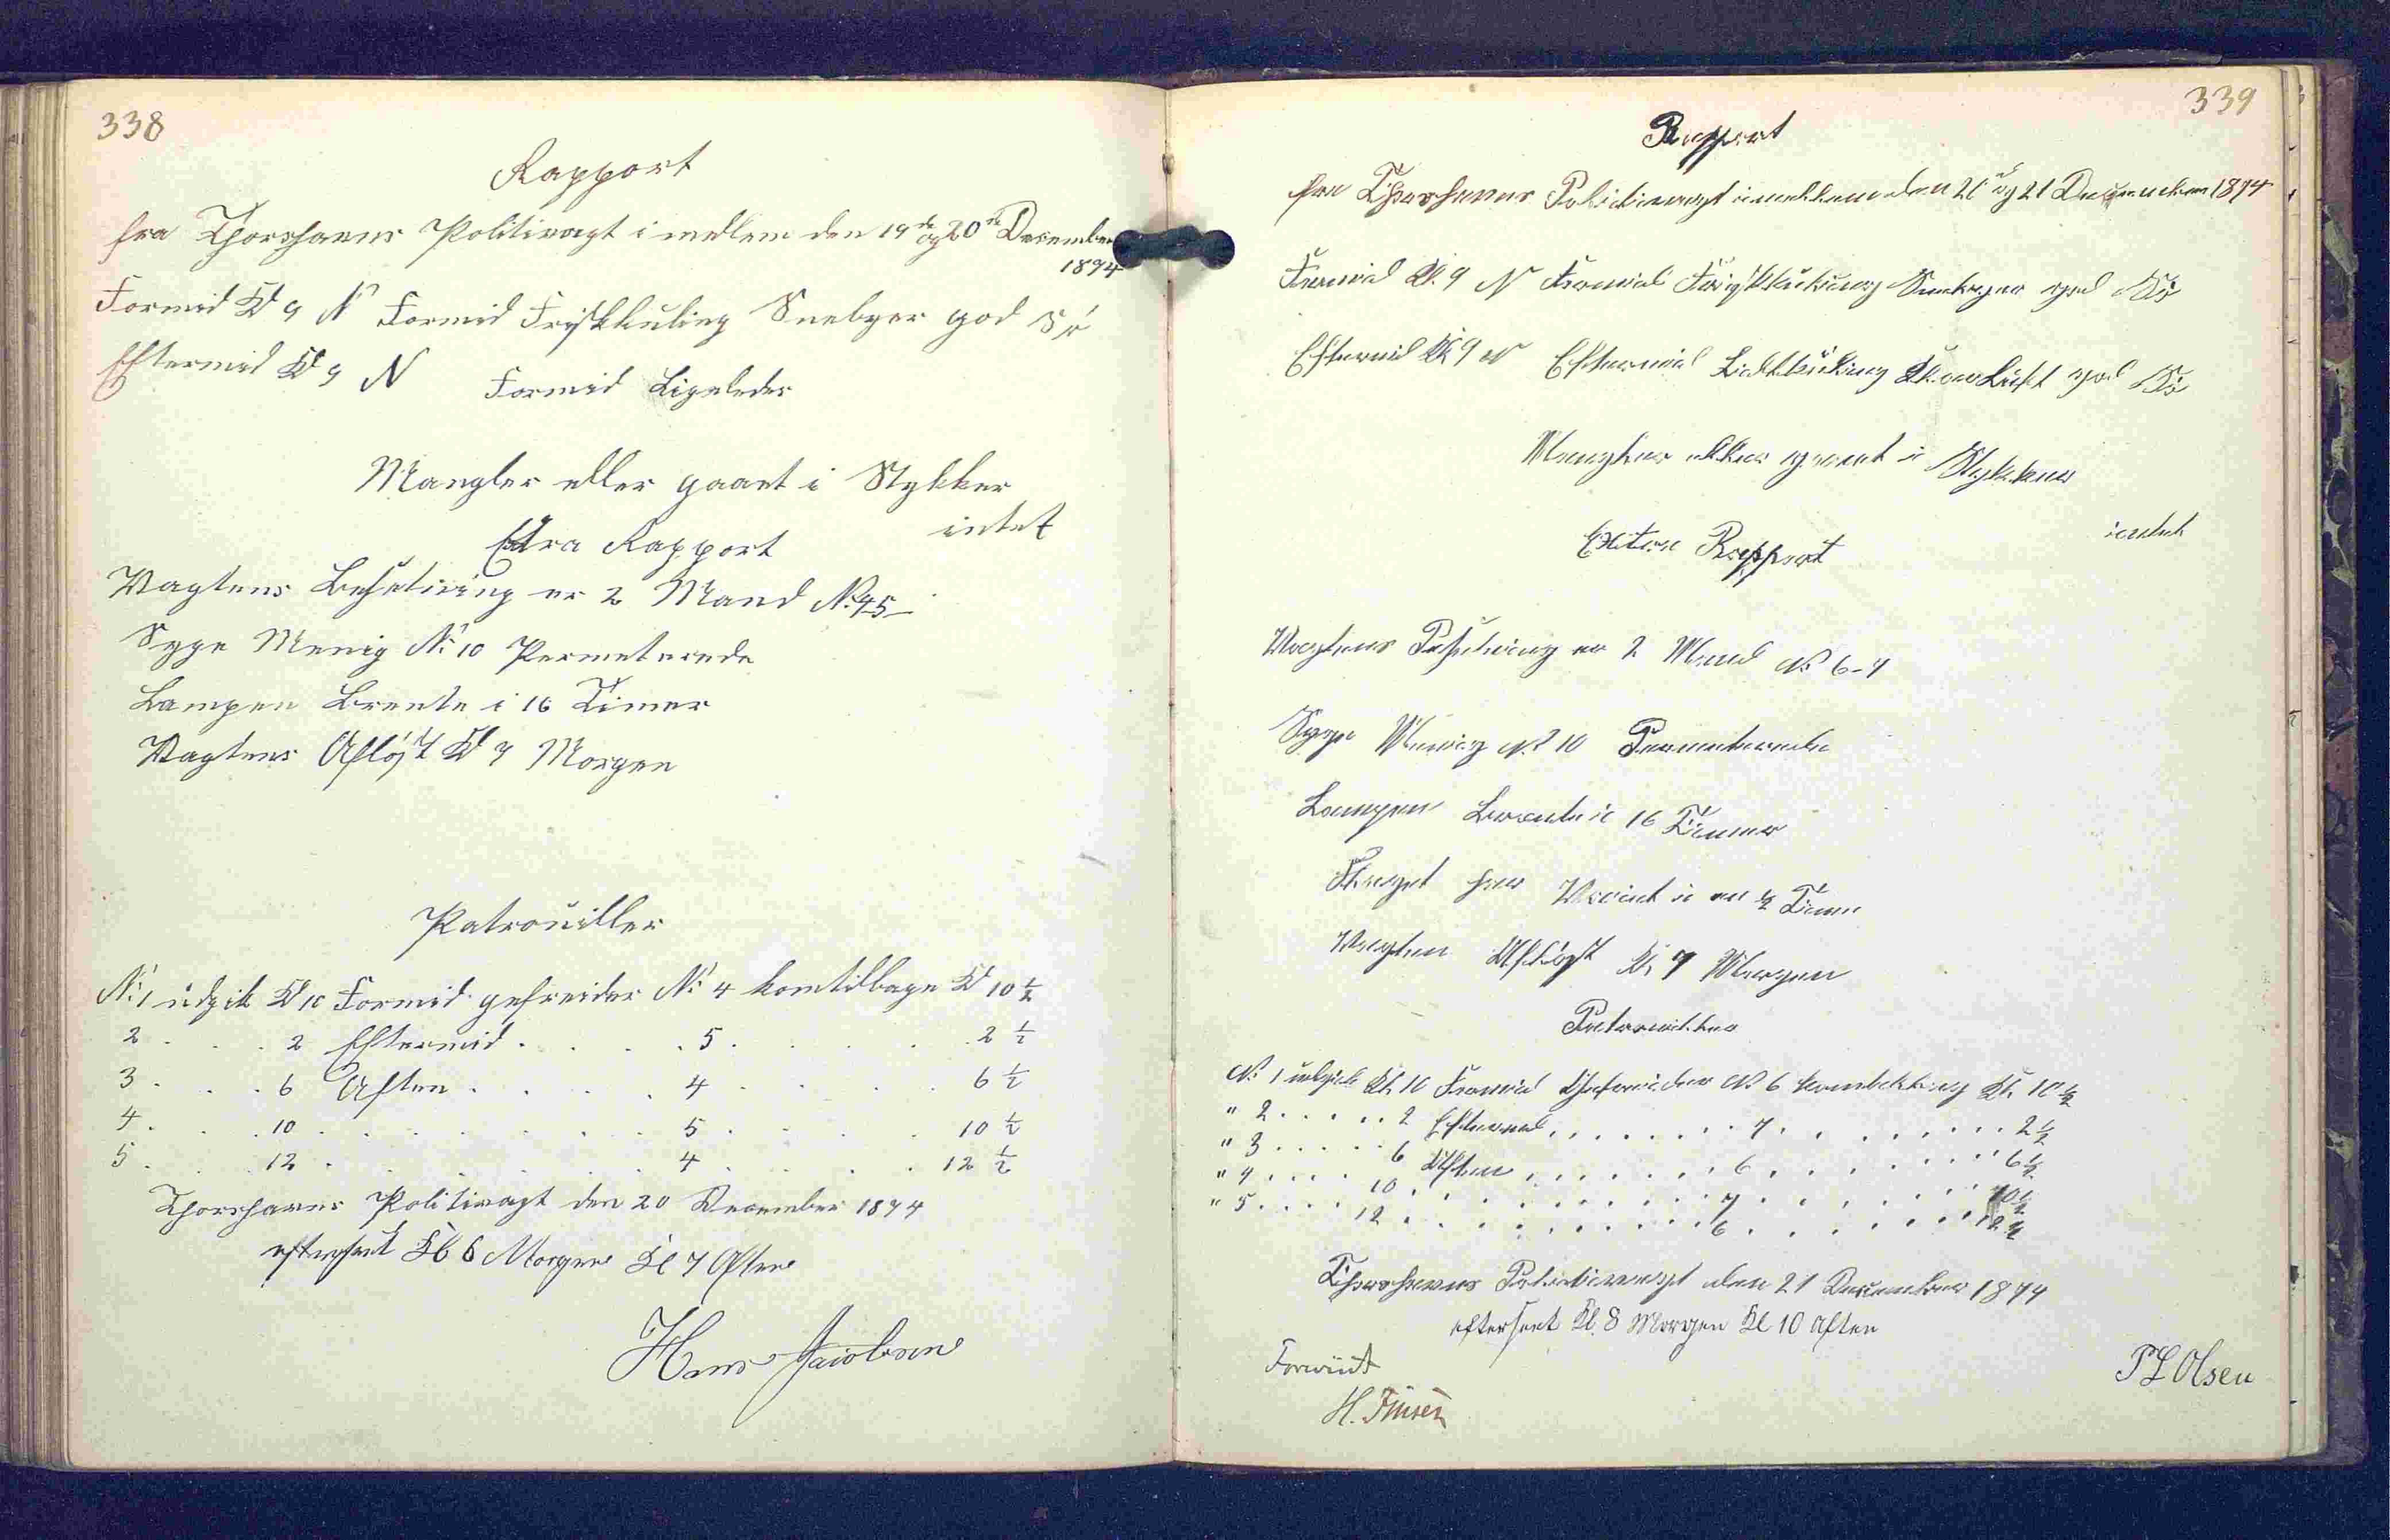 338
Rapport
fra Thorshavns Politivagt i mellem den 19de og 20de December
1894
Formid Kl 9 N Formid Friskkuling Snebyer god Sö
Eftermid Kl 9 N Formid Ligeledes
Mangler eller gaaet i Stykker
intet
Extra Rapport
Vagtens Besetning er 2 Mand No 4 5
Syge Menig No 10 Permeterede
Lampen Brente i 16 Timer
Vagtens Aflöst Kl 9 Morgen
Patrouiller
No 1 udgik Kl 10 Formid gefreider No 4 kom tilbage Kl 10 1/2
2 . . . 2 Eftermid . . . . 5 . . . . . 2 1/2
3 . . . 6 Aften . . . . 4 . . . . . 6 1/2
4 . . . 10 . . . . . . . 5 . . . . . 10 1/2
5 . . . 12 . . . . . . . 4 . . . . . 12 1/2
Thorshavns Politivagt den 20 December 1894
efterseet Kl 8 Morgen Kl 7 Aften
Hans Jacobsen
339
Rapport
fra Thorshavns Politivagt imellem den 20 og 21 December 1894
Formid Kl. 9 N Formid Friskkuling Snebyer god Sö
Eftermid Kl 9 N Eftermid Lidtkuling Klar Luft god Sö
Mangler eller gaaet i Stykker
intet
Extra Rapport
Vagtens Besetning er 2 Mand No 6-7
Syge Menig No 10 Permeterede
Lampen Brente i 16 Timer
Flaget har Vaiet i en 1/2 Time
Vagten Aflöst Kl. 9 Morgen
Patrouiller
No 1 udgik Kl. 10 Formid Gefreider No 6 kom tilbag Kl. 10 1/2
" 2 . . . . . 2 Eftermid . . . . . . . 7 . . . . . . . . 2 1/2
" 3 . . . . . 6 Aften . . . . . . . 6 . . . . . . . . 6 1/2
" 4 . . . . . 10 . . . . . . . . . 7 . . . . . . . . 10 1/2
" 5 . . . . . 12 . . . . . . . . . 6 . . . . . . . . 12 1/2
Thorshavns Politivagt den 21 December 1894
efterseet Kl. 8 Morgen Kl 10 Aften
Forevist
P L Olsen
H. Finsen